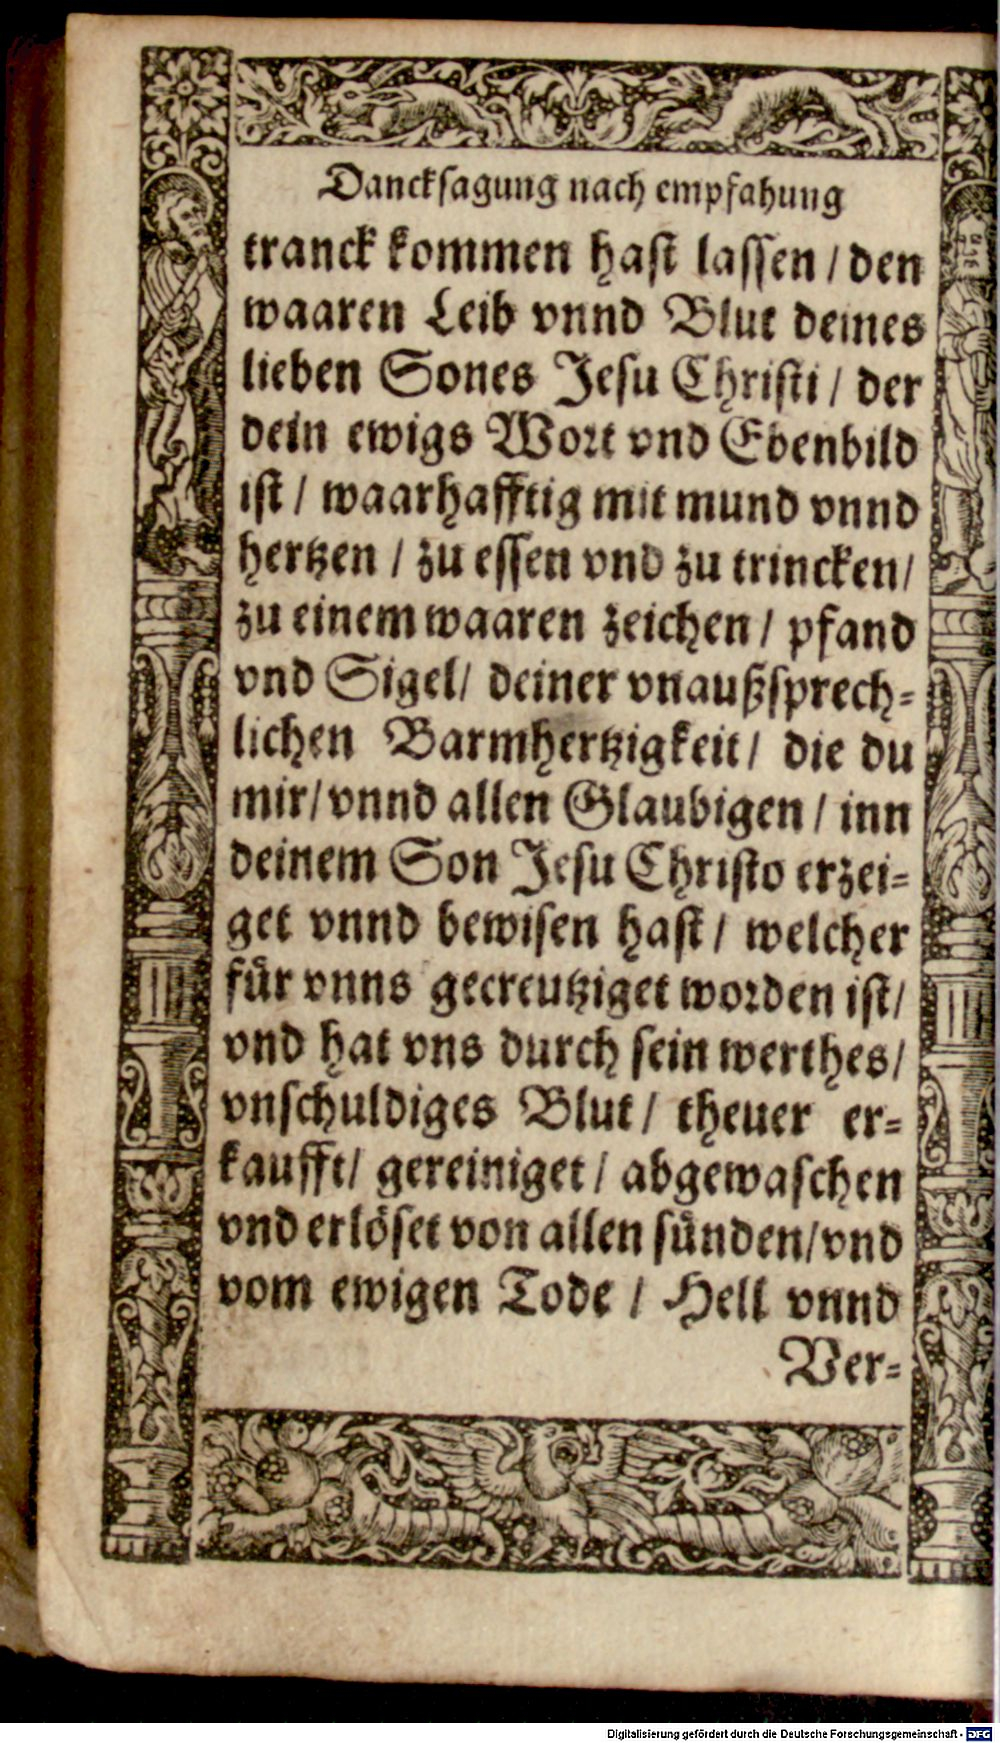 Dancksagung nach empfahung
tranck kommen hast lassen / den
waaren Leib vnnd Blut deines
lieben Sones Jesu Christi / der
dein ewigs Wort vnd Ebenbild
ist / waarhafftig mit mund vnnd
hertzen / zu essen vnd zu trincken /
zu einem waaren zeichen / pfand
vnd Sigel / deiner vnaußsprech-
lichen Barmhertzigkeit / die du
mir / vnnd allen Glaubigen / inn
deinem Son Jesu Christo erzei-
get vnnd bewisen hast / welcher
für vnns gecreutziget worden ist /
vnd hat vns durch sein werthes /
vnschuldiges Blut / theuer er-
kaufft / gereiniget / abgewaschen
vnd erlöset von allen sünden / vnd
vom ewigen Tode / Hell vnnd
Ver-
Digitalisierung gefördert durch die Deutsche Forschungsgemeinschaft - DFG